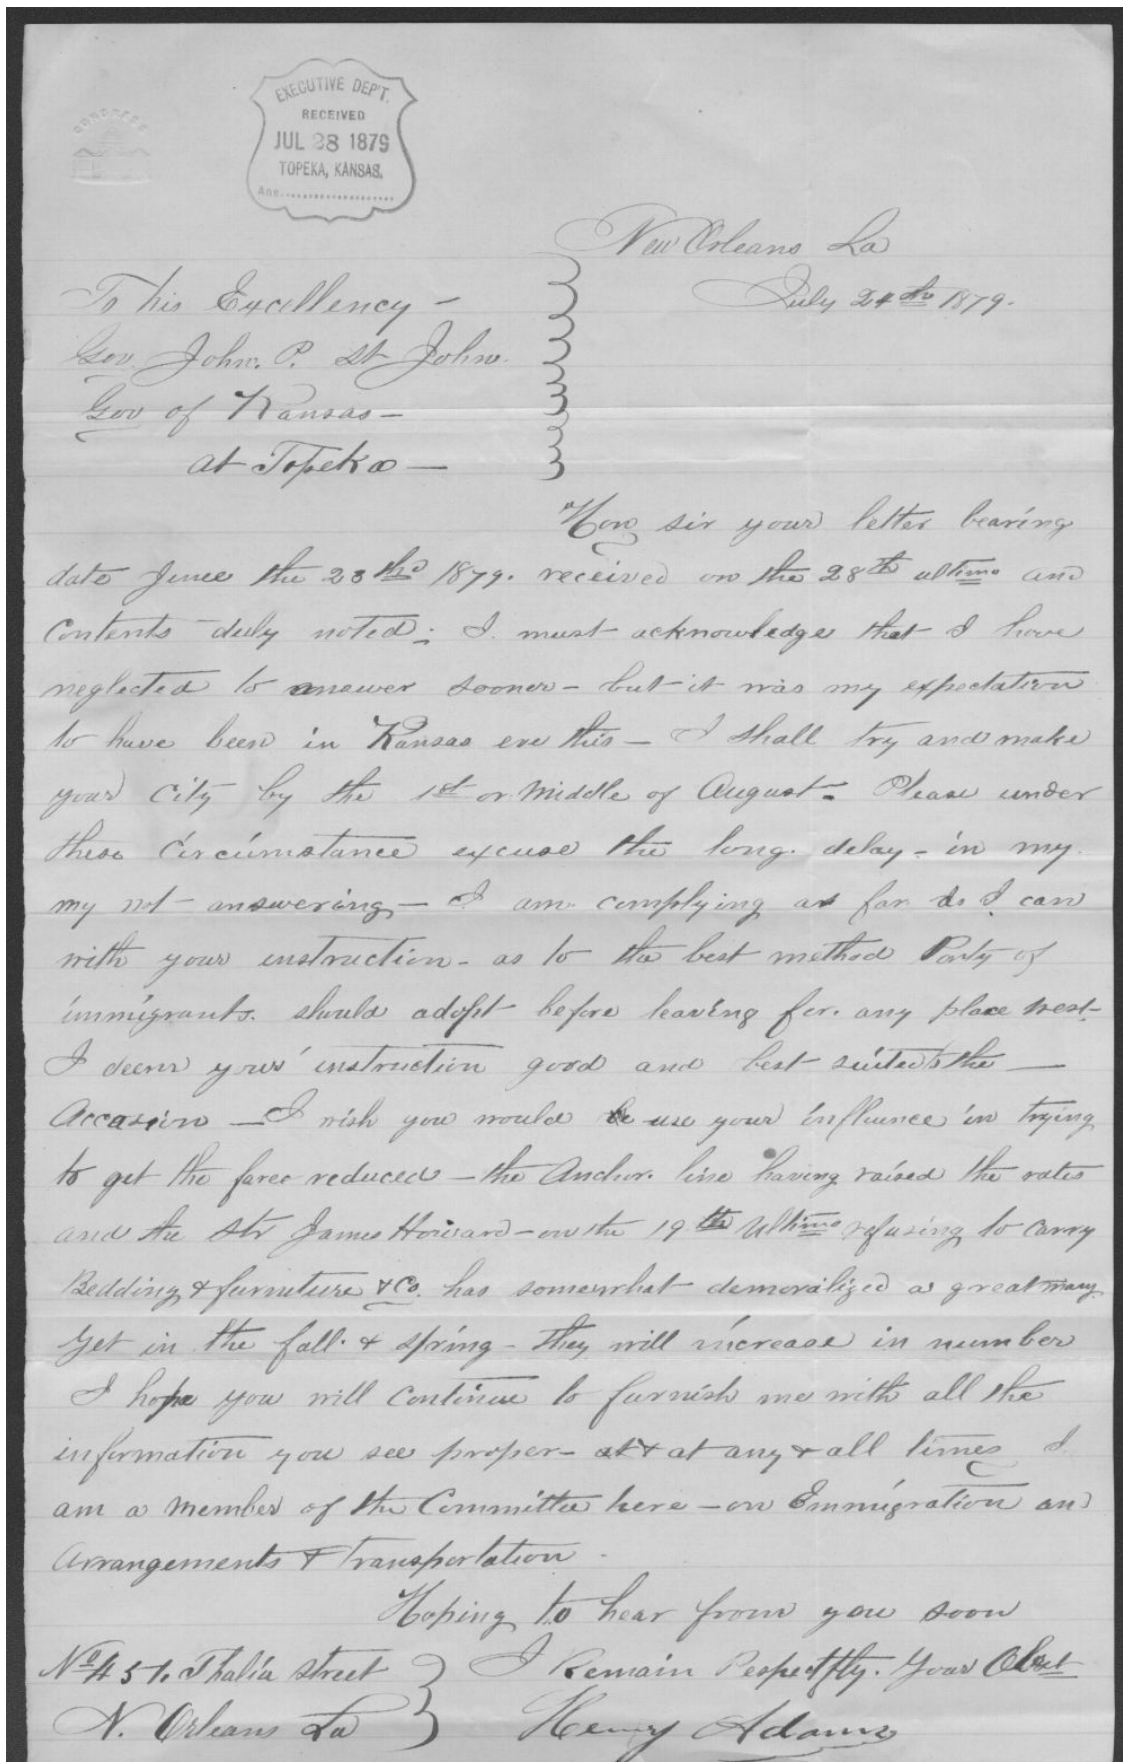 CONGRESS
EXECUTIVE DEP'T.
RECEIVED
JUL 28 1879
TOPEKA, KANSAS.
Ans.
New Orleans La
July 24th 1879.
To his Excellency —
Gov. John. P. St John.
Gov of Kansas —
at Topeka —
Hon sir your letter bearing
date June the 23th 1879. received on the 28th ultimo and
Contents duly noted; I must acknowledge that I have
neglected to answer sooner - but it was my expectation
to have been in Kansas ere this — I shall try and make
your City by the 1st or Middle of August - Please under
these Circumstance excuse the long delay - in my
my not answering — I am complying as far as I can
with your instruction - as to the best method Party of
immigrants. should adopt before leaving for. any place west -
I deem yours instruction good and best suited to the —
Accasion — I wish you would use your influence in trying
to get the fares reduced — the Anchor. line having raised the rates
and the Str James Howard — on the 19th Ultimo refusing to carry
Bedding & furniture & Co. has somewhat demoralized a great many
Yet in the fall. & spring - they will increase in number
I hope you will Continue to furnish me with all the
information you see proper - at & at any & all times I
am a member of the Committee here — on Emmigration and
Arrangements & Transportation.
Hoping to hear from you soon
I Remain Respectfly. Your Obst
Henry Adams
No 451. Thalia street
N. Orleans La